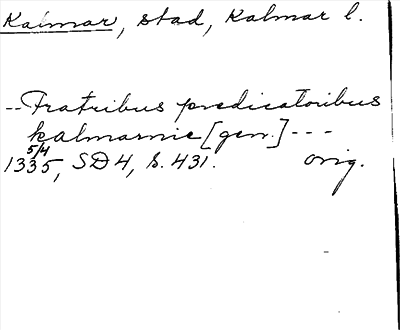 Kalmar, stad, Kalmar l.
-- Fratribus predicatoribus
kalmarnie [gen.] ---
5/4
1335, SD 4, s. 431. orig.